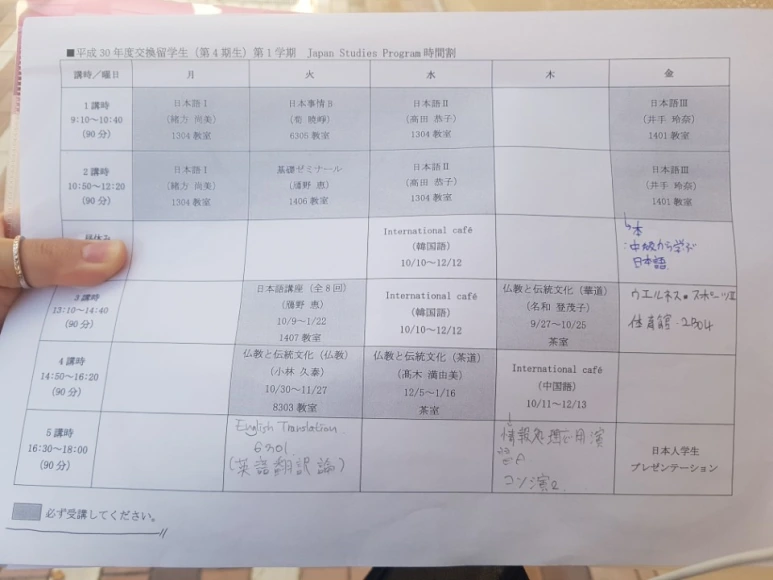 ■平成 30 年度交換留学生（第 4 期生）第 1 学期　Japan Studies Program 時間割
講時／曜日　月　火　水　木　金
1 講時
9:10～10:40
(90 分)
日本語Ⅰ
(緒方 尚美)
1304 教室
日本事情 B
暁崢)
6305 教室
日本語Ⅱ
(高田 恭子)
1304 教室
日本語Ⅲ
(井手 玲奈)
1401 教室
2 講時
10:50～12:20
(90 分)
日本語Ⅰ
(緒方 尚美)
1304 教室
基礎ゼミナール
(鴈野 恵)
1406 教室
日本語Ⅱ
(高田 恭子)
1304 教室
日本語Ⅲ
(井手 玲奈)
1401 教室
昼休み
International café
(韓国語)
10/10～12/12
本
:中級から学ぶ
日本語
3 講時
13:10～14:40
(90 分)
日本語講座（全 8 回）
(鴈野 恵)
10/9～1/22
1407 教室
International café
(韓国語)
10/10～12/12
仏教と伝統文化（華道）
(名和 登茂子)
9/27～10/25
茶室
ウエルネス・スポーツⅡ
体育館・2304
4 講時
14:50～16:20
(90 分)
仏教と伝統文化（仏教）
(小林 久泰)
10/30～11/27
8303 教室
仏教と伝統文化（茶道）
(髙木 満由美)
12/5～1/16
茶室
International café
(中国語)
10/11～12/13
5 講時
16:30～18:00
(90 分)
English Translation.
6301.
(英語翻訳論)
情報処理応用演
コン演2.
日本人学生
プレゼンテーション
必ず受講してください。